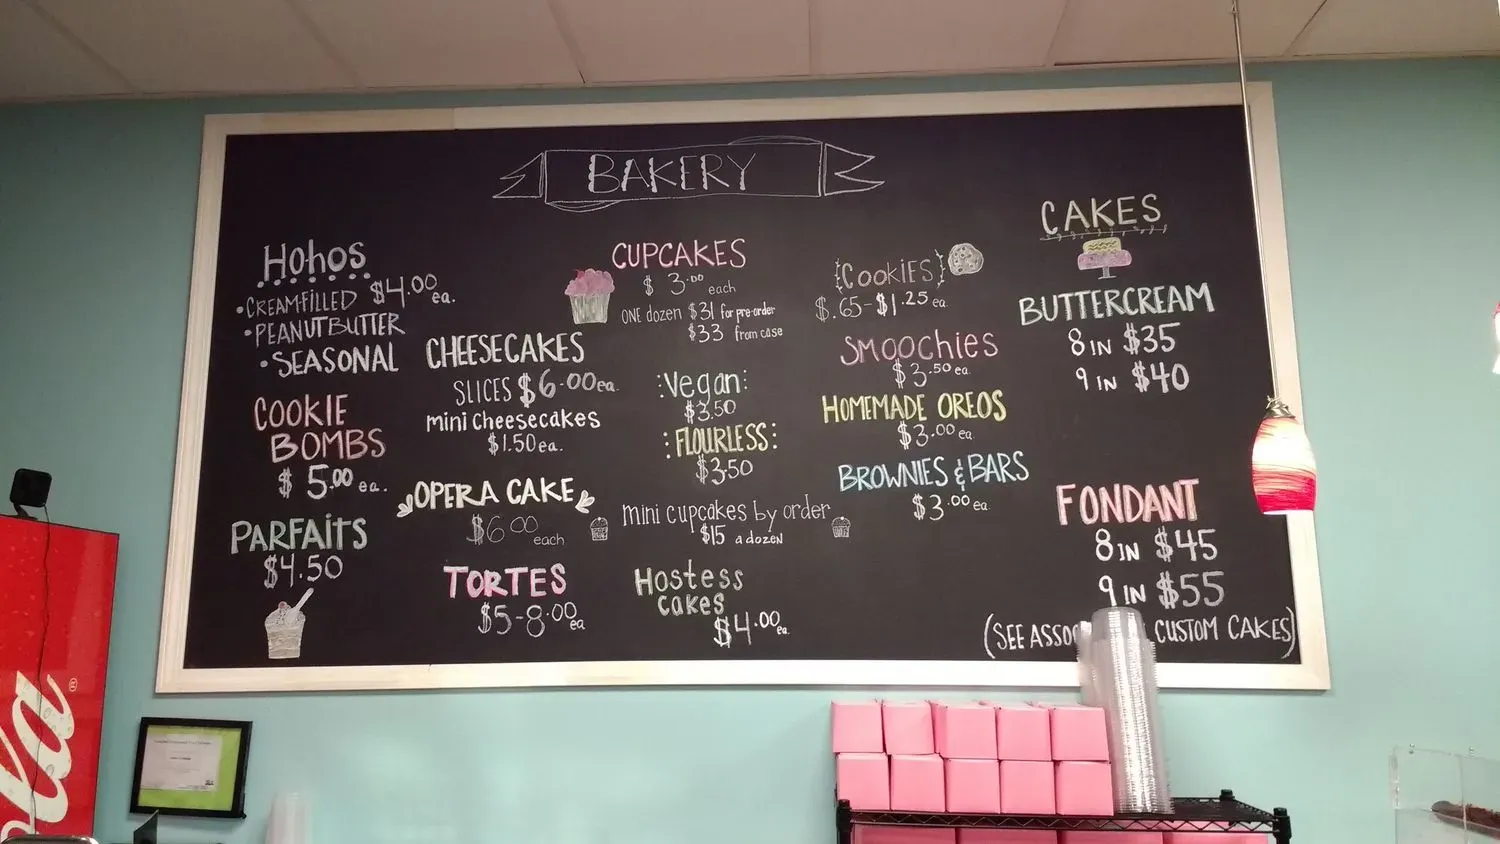 BAKERY
HOHOS
• CREAMFILLED $4.00 ea.
• PEANUTBUTTER
• SEASONAL
COOKIE
BOMBS
$5.00 ea.
PARFAITS
$4.50
CHEESECAKES
SLICES $6.00 ea.
mini cheesecakes
$1.50 ea.
OPERA CAKE
$6.00 each
TORTES
$5-8.00 ea
CUPCAKES
$3.00 each
ONE dozen $31 for pre-order
$33 from case
:Vegan:
$3.50
:FLOURLESS:
$3.50
mini cupcakes by order
$15 a dozen
Hostess
cakes
$4.00 ea.
{COOKIES}
$.65-$1.25 ea.
SMOOCHIES
$3.50 ea.
HOMEMADE OREOS
$3.00 ea.
BROWNIES & BARS
$3.00 ea.
CAKES
BUTTERCREAM
8 IN $35
9 IN $40
FONDANT
8 IN $45
9 IN $55
(SEE CUSTOM CAKES)
la®